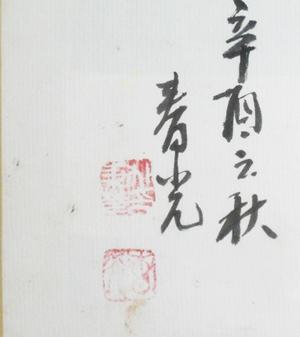 辛酉之秋
春光